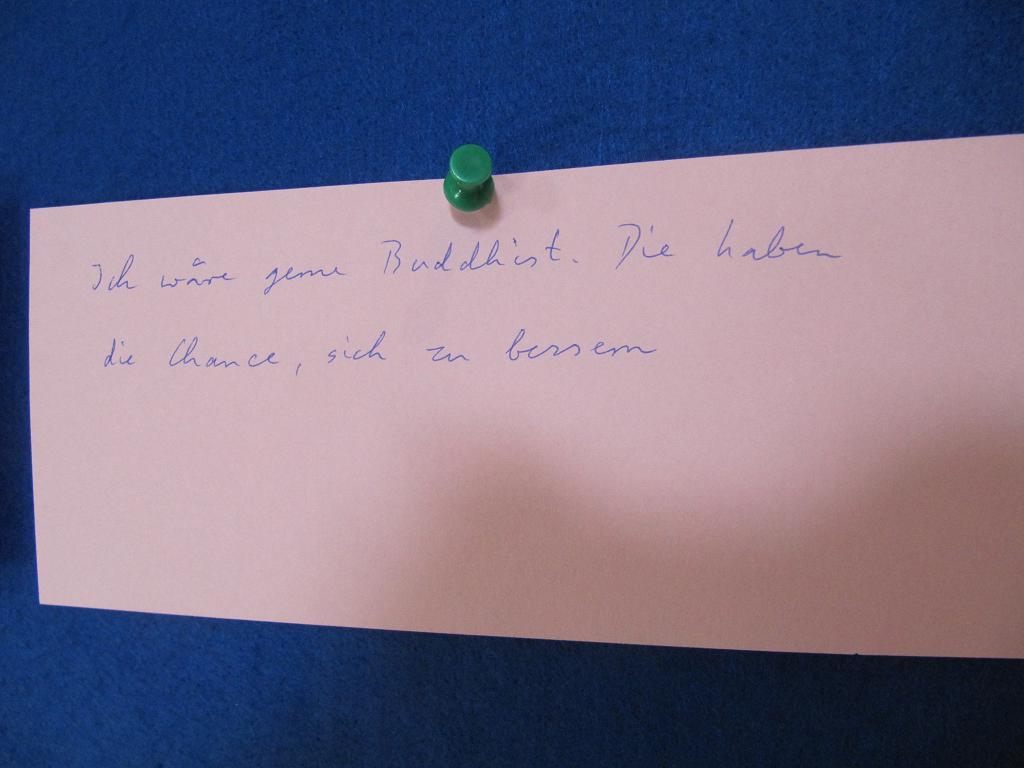 Ich wäre gerne Buddhist. Die haben
die Chance, sich zu bessern